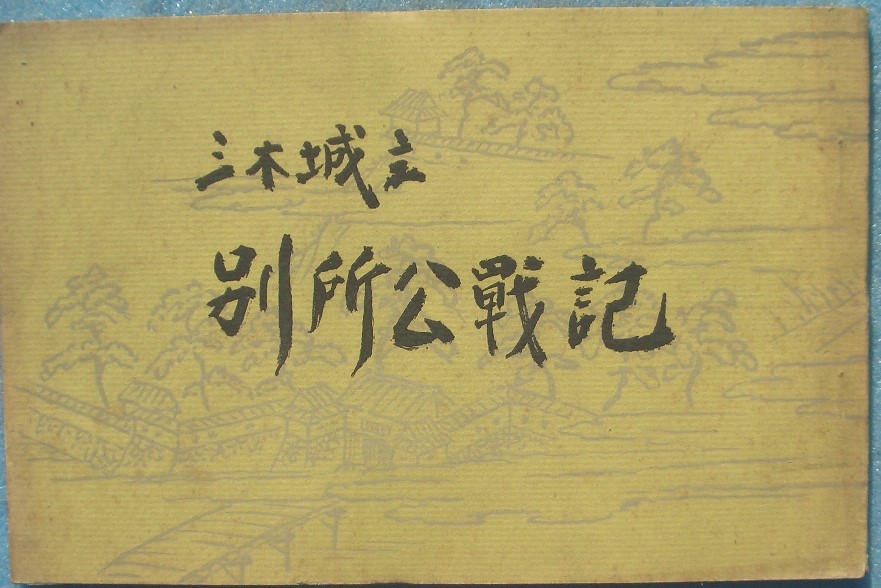 三木城主
別所公戰記